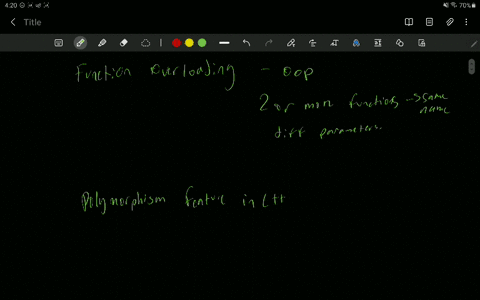 4:20
70%
Title
Function Overloading - OOP
2 or more functions → same name
diff parameters
Polymorphism feature in C++